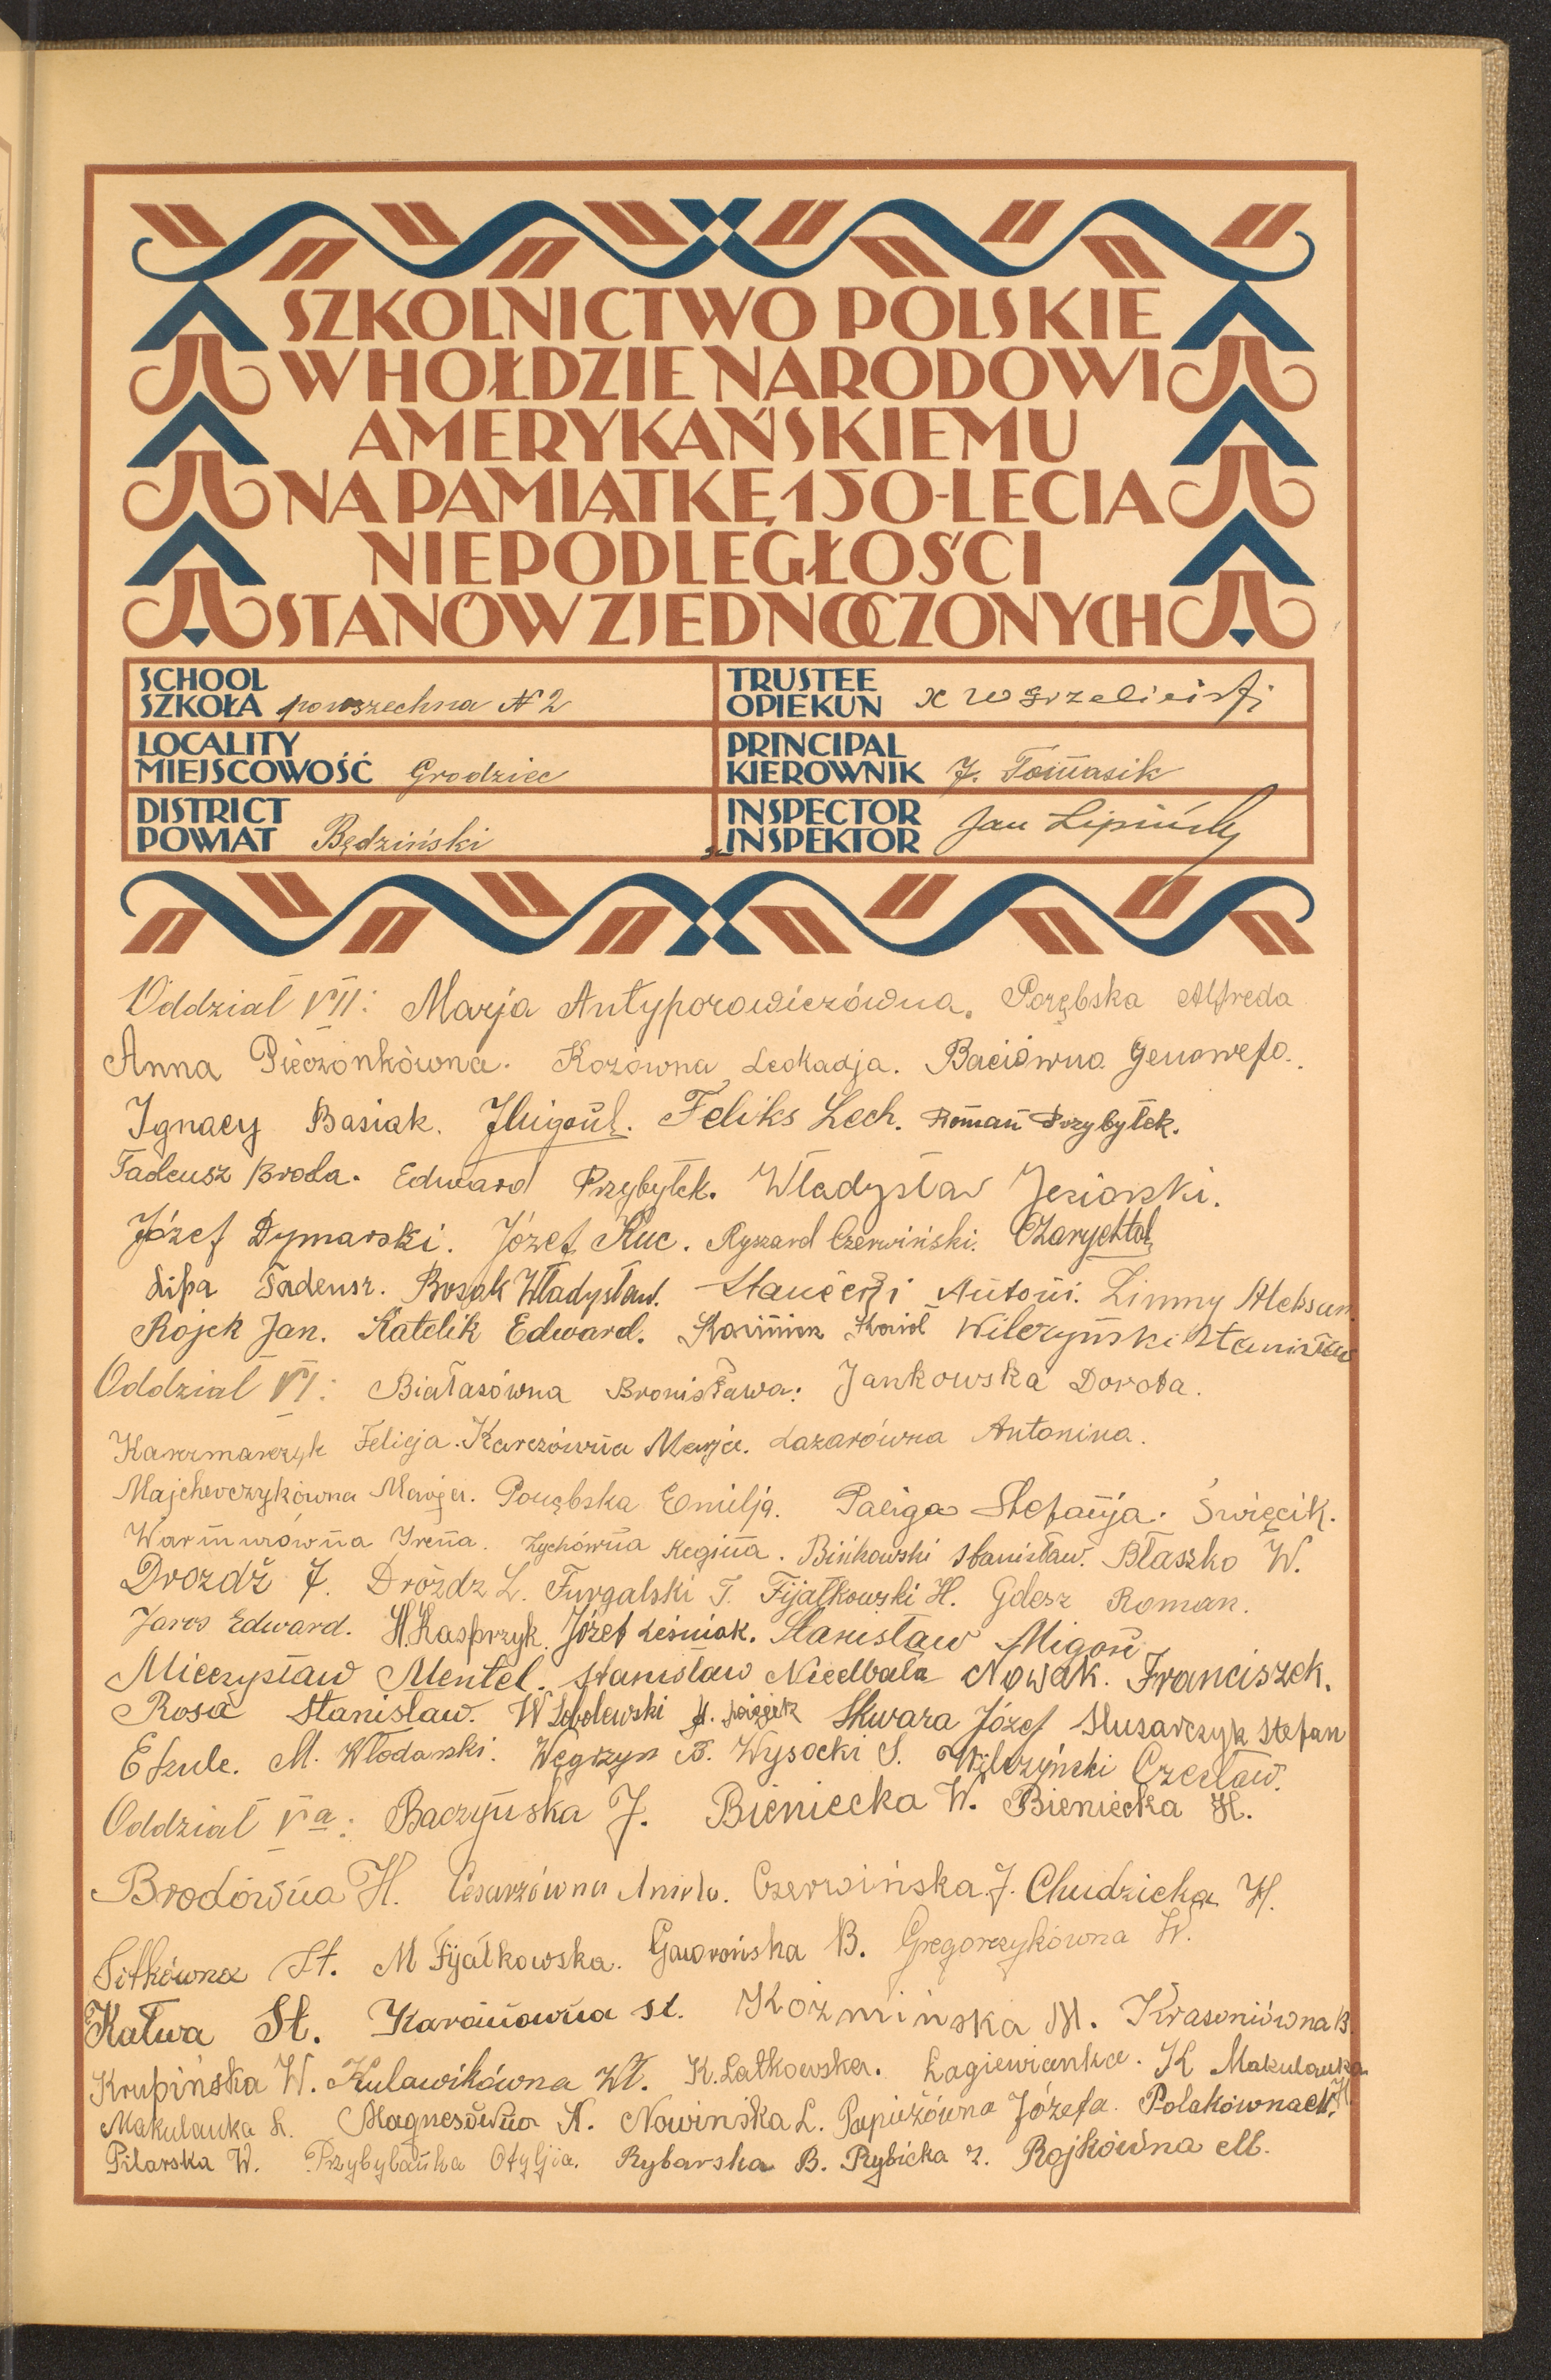 SZKOLNICTWO POLSKIE
W HOŁDZIE NARODOWI
AMERYKAŃSKIEMU
NA PAMIĄTKĘ 150-LECIA
NIEPODLEGŁOŚCI
STANÓW ZJEDNOCZONYCH
SCHOOL
SZKOŁA powszechna N 2
TRUSTEE
OPIEKUN
LOCALITY
MIEJSCOWOŚĆ Grodziec
PRINCIPAL
KIEROWNIK J. Tomasik
DISTRICT
POWIAT Będziński
INSPECTOR
INSPEKTOR Jan Lipiński
Oddział VII: Marja Antyporowiczówna. Porębska Alfreda
Anna Pieczonkówna. Kozówna Leokadja. Baciówna Genowefa.
Ignacy Basiak. Feliks Lech. Roman Przybyłek.
Tadeusz Broda. Edward Przybyłek. Władysław Jeziorski.
Józef Dymarski. Józef Kuc. Ryszard Czerwiński.
Lipa Tadeusz. Bosak Władysław. Antoni. Limny Aleksan.
Rojek Jan. Katelik Edward. Karol Wilczyński Stanisław
Oddział VI: Białasówna Bronisława: Jankowska Dorota.
Karzmarczyk Felicja. Karczówna Marja. Lazarówna Antonina.
Majcherczykówna Marja. Porębska Emilja. Paliga Stefanja. Święcik.
Warmuzówna Irena. Zychówna Regina. Bińkowski Stanisław. Błaszko W.
Drozdź J. Dróżdz L. Furgalski T. Fijałkowski H. Gdesz Roman.
Jaros Edward. H. Kasprzyk. Józef Leśniak. Stanisław Migoń
Mieczysław Mentel. Stanisław Niedbała Nowak. Franciszek.
Rosa Stanisław. W Sobolewski Skwara Józef Slusarczyk Stefan
E Szule. M. Włodarski. Węgrzyn B. Wysocki S. Wilczyński Czesław.
Oddział Va: Baczyńska J. Bieniecka W. Bieniecka H.
Brodówna H. Cesarzówna Aniela. Czerwińska J. Chudzicka H.
Sitkówna St. M Fijałkowska. Gawrońska B. Gręgorczykówna W.
Kałwa St. Karańówna St. Koźmińska M. Krasoniówna B.
Krupińska W. Kulawikówna Wł. K. Latkowska. Łagiewianka. K Makulanka
Makulanka H. Magnesówna K. Nowinska L. Papieżówna Józefa. Polakówna M.
Pilarska W. Przybylanka Otylja. Rybarska B. Rybicka Z. Rojkówna M.